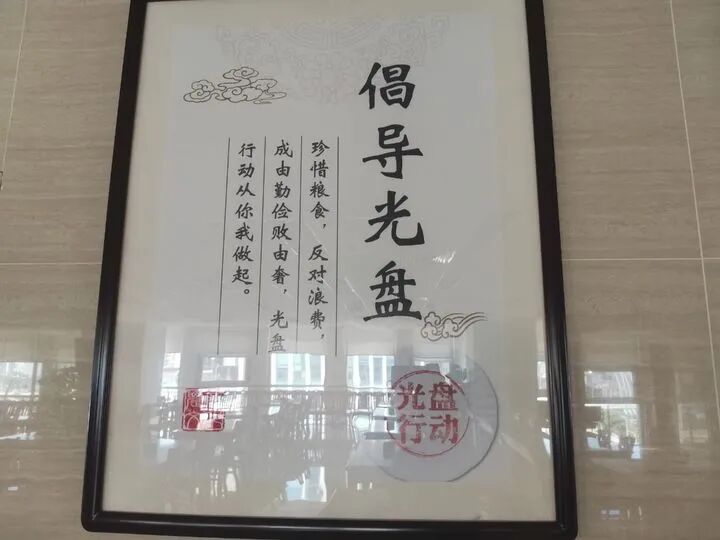 倡导光盘
珍惜粮食，反对浪费，
成由勤俭败由奢，光盘
行动从你我做起。
光盘
行动